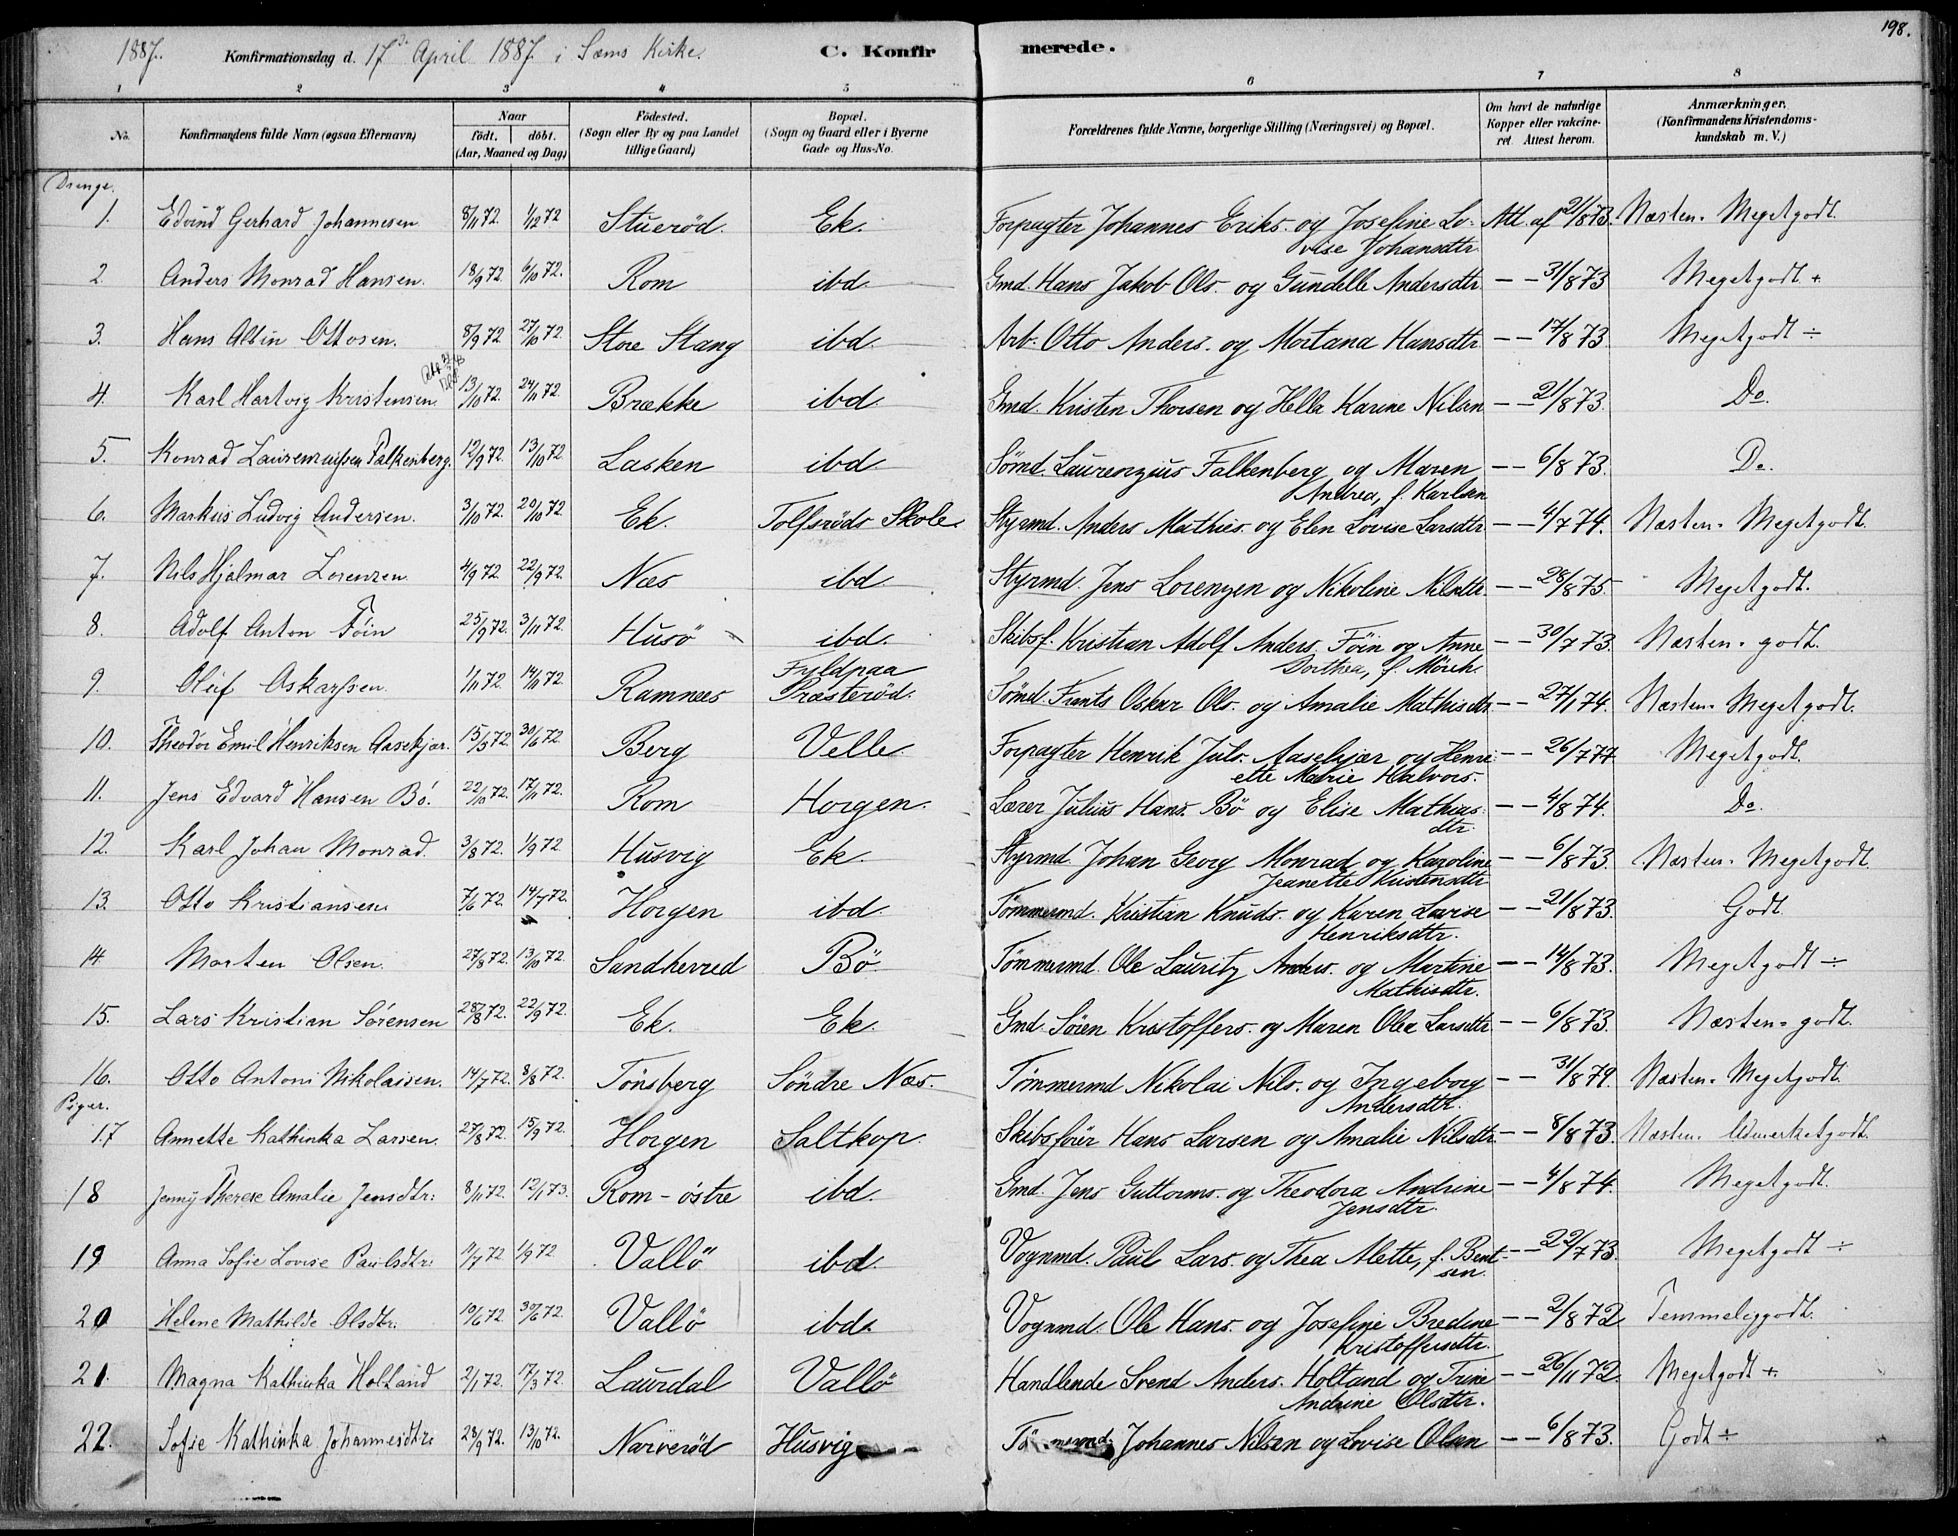 198.
1887. Konfirmationsdag d. 17de April 1887 i Sæms Kirke. C. Konfirmerede.
1 2 3 4 5 6 7 8
No. Konfirmandens fulde Navn (ogsaa Efternavn) Naar født. døbt. (Aar, Maaned og Dag) Fødested. (Sogn eller By og paa Landet tillige Gaard) Bopæl. (Sogn og Gaard eller i Byerne Gade og Hus-No. Forældrenes fulde Navne, borgerlige Stilling (Næringsvei) og Bopæl. Om havt de naturlige Kopper eller vakcineret. Attest herom. Anmærkninger. (Konfirmandens Kristendomskundskab m. V.)
Drenge.
1. Edvind Gerhard Johannesen 8/11 72. 1/12 72 Stuerød Ek. Forpagter Johannes Eriks. og Josefine Lovise Johansdtr. Att. af 21/8 73. Næsten Megetgodt.
2. Anders Monrad Hansen. 18/9 72. 6/10 72. Rom ibd. Gmd. Hans Jakob Ols. og Gundelle Andersdtr. — — 31/8 73 Megetgodt +
3. Hans Altin Ottosen. 8/9 72 27/10 72. Store Stang ibd. Arb. Otto Anders. og Mortana Hansdtr. — — 17/8 73 Megetgodt ÷
4. Karl Hartvig Kristensen. 13/10 72. 24/11 72. Brække ibd. Gmd. Kristen Thorsen og Hella Karine Nilsen — — 21/8 73. Do.
5. Konrad Laurenziussen Falkenberg. 12/9 72. 13/10 72. Lasken ibd. Sømd. Laurenzius Falkenberg og Maren Andrea, f. Karlsen — — 6/8 73. Do.
6. Markus Ludvig Andersen. 3/10 72. 20/10 72. Ek. Tolfsrøds Skole. Styrmd. Anders Mathies. og Elen Lovise Larsdtr — — 4/7 74. Næsten Megetgodt.
7. Nils Hjalmar Lorenzen 4/9 72. 22/9 72. Næs ibd. Styrmd. Jens Lorenzen og Nikoline Nilsdtr. — — 28/8 75. Megetgodt.
8. Adolf Anton Föin 25/9 72. 3/11 72. Husö ibd. Skibsf. Kristian Adolf Anders. Föin og Anne Dorthea, f. Mörch. — — 30/7 73. Næsten godt.
9. Oleif Oskarssen. 1/11 72. 14/11 72. Ramnæs Fyldpaa Præsterød. Sømd. Frants Oskar Ols. og Amalie Mathisdtr. — — 27/1 74. Næsten Megetgodt.
10. Theodor Emil Henriksen Aasekjær. 15/5 72. 30/6 72. Berg Velle. Forpagter Henrik Juls. Aasekjær og Henriette Marie Halvors. — — 26/7 77 Megetgodt.
11. Jens Edvard Hansen Bö. 22/10 72. 17/11 72. Rom Horgen. Lærer Julius Hans. Bö og Elise Mathiasdtr. — — 4/8 74. Do.
12. Karl Johan Monrad. 3/8 72. 1/9 72. Husvig Ek. Styrmd. Johan Georg Monrad og Karoline Jeanette Kristensdtr — — 6/8 73. Næsten Megetgodt
13. Otto Kristiansen. 7/6 72. 14/7 72. Horgen ibd. Tømmermd. Kristian Knuds. og Karen Lovise Henriksdtr. — — 21/8 73. Godt
14. Morten Olsen. 27/8 72. 13/10 72. Sandherred Bö Tømmermd. Ole Lauritz Anders. og Martine Mathisdtr. — — 14/8 73. Megetgodt ÷
15. Lars Kristian Sörensen 28/8 72. 22/9 72. Ek. Ek. Gmd. Sören Kristoffers. og Maren Olea Larsdtr — — 6/8 73. Næsten godt.
16. Otto Antoni Nikolaisen. 14/7 72. 8/8 72. Tönsberg Söndre Næs. Tømmermd Nikolai Nils. og Ingeborg Andersdtr. — — 31/8 79. Næsten Megetgodt.
Piger.
17 Annette Kathinka Larsen. 27/8 72. 15/9 72. Horgen Saltkop. Skibsförer Hans Larsen og Amalie Nilsdtr — — 8/8 73. Næsten Udmerketgodt.
18 Jenny Therese Amalie Jensdtr: 8/11 72. 12/1 73. Rom - östre ibd. Gmd. Jens Guttorms. og Theodora Andrine Jensdtr. — — 4/8 74. Megetgodt.
19 Anna Sofie Lovise Paulsdtr: 11/7 72 1/9 72 Vallö ibd. Vognmd. Paul Lars. og Thea Alette, f. Bentsen. — — 22/7 73. Megetgodt ÷
20 Helene Mathilde Olsdtr: 10/6 72. 30/6 72. Vallö ibd. Vognmd. Ole Hans. og Josefine Bredine Kristoffersdtr. — — 2/8 72 Temmeliggodt.
21. Magna Kathinka Holtand 2/1 72. 17/3 72. Laurdal Vallö Handlende Svend Anders. Holtand og Trine Andrine Olsdtr. — — 26/11 72. Megetgodt +.
22. Sofie Kathinka Johannesdtr: 28/9 72. 13/10 72. Narverød Husvig Tømmermd. Johannes Nilsen og Lovise Olsen — — 6/8 73. Godt ÷